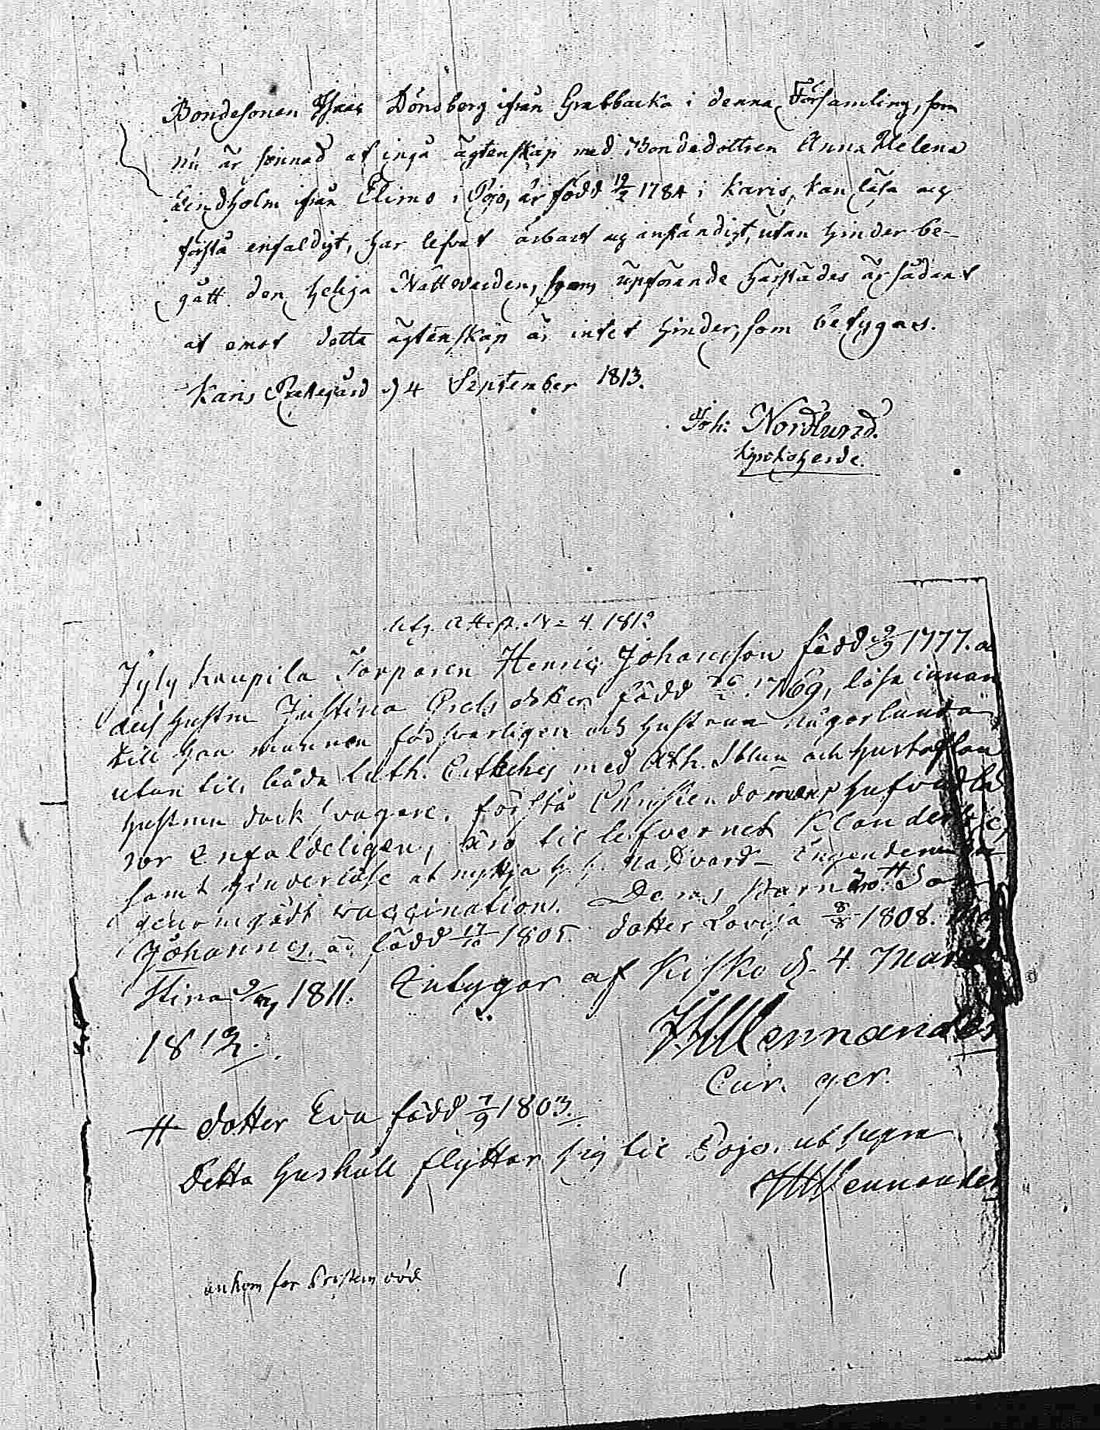 Bondesonen Isaac Söndberg ifrån Grabbacka i denna Församling, som
nu är sinnad at ingå ägtenskap med Bondedottren Anna Helena
Lindholm ifrån Elimo i Pojo, är född 19/2 1784 i Karis, kan läsa och
förstå enfaldigt, har lefvat ärbart och anständigt, utan hinder be-
gått den heliga Nattvarden, hvars upförande härstädes är sådant
at emot detta ägtenskap är intet hinder, som betygas.
Karis Prestegård d 4 September 1813.
Joh: Nordlund.
Kyrkoherde.
4. 1812
Jyly Kaupila Torparen Henric Johansson född 9/9 1777. och
dess hustru Justina född 1769, läsa innan
till han mannen försvarligen och hustrun någorlunda
utan til, båda Luth. Cateches med Ath. Sblm och hustaflan
hustrun dock svagare. förstå Christendomens hufvudlä
ror Enfaldeligen, äro til lefvernet Klanderfrie,
samt hinderlöse at nyttja H. H. Nattvard
genomgådt vaccination. Deras Barn äro: # Son
Johannes är född 17/10 1805. dotter Lovisa 8/8 1808.
Stina 1811. Intygar af Kisko d. 4. Martii
1812.
Wennander
Cur. ger.
# dotter Eva född 7/9 1803.
Detta hushåll flyttar sig til Pojo. ut supra
Wennander
ankom för Presten död